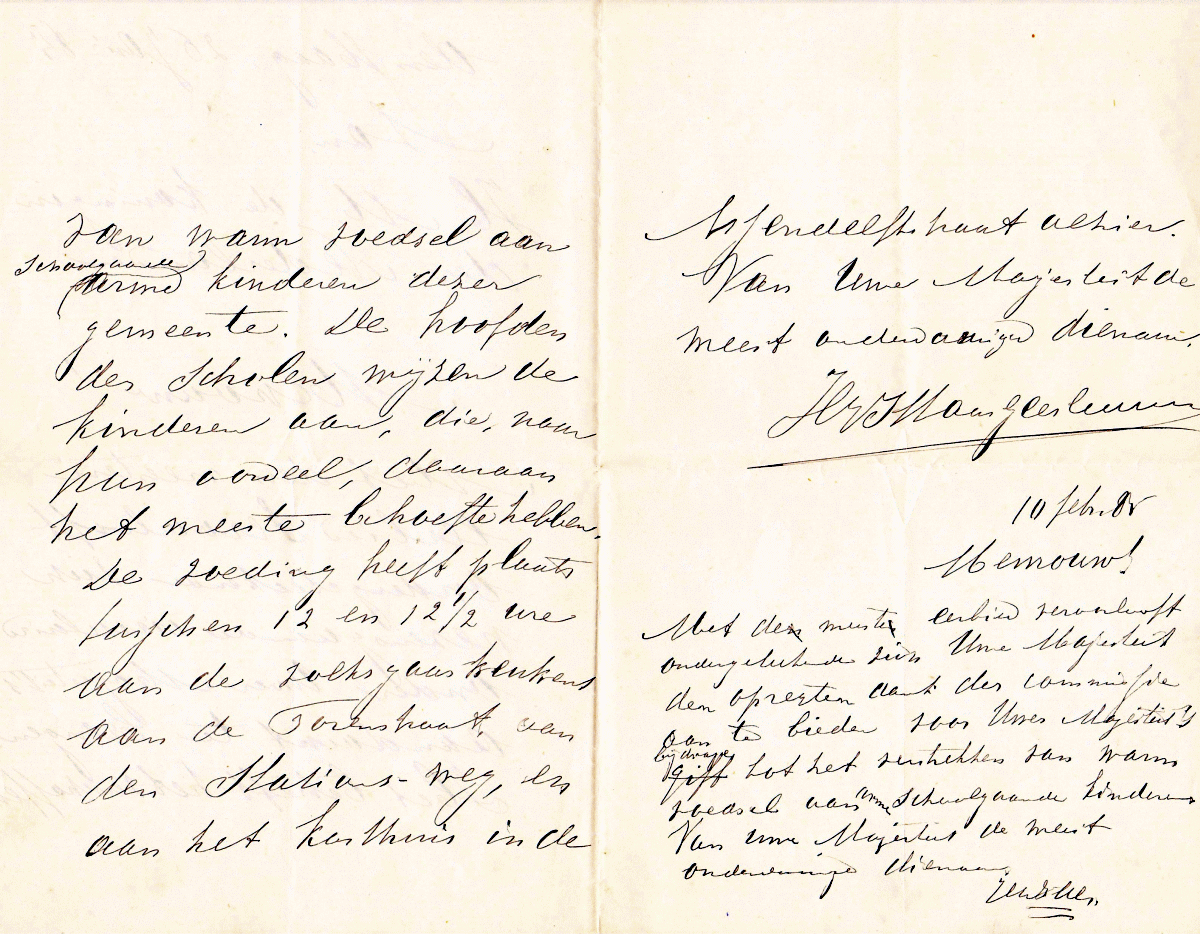 van warm voedsel aan
Schoolgaande
arme kinderen dezer
gemeente. De hoofden
der Scholen wijzen de
kinderen aan, die, naar
hun oordeel, daaraan
het meeste behoefte hebben.
De voeding heeft plaats
tusschen 12 en 12 1/2 ure
aan de volksgaarkeukens
aan de Torenstraat, aan
den Stations-weg, en
aan het kosthuis in de
Assendelfstraat alhier.
Van Uwe Majesteit de
meest onderdanige dienaar.
10 febr. 85
Mevrouw!
Met den meeste eerbied veroorlooft
ondergeteekende zich Uwe Majesteit
den opregten dank der commissie
aan te bieden voor Uwer Majesteit's
bijdrage
gift tot het verstrekken van warm
voedsel aan arme Schoolgaande kinderen
Van Uwe Majesteit de meest
onderdanige dienaar